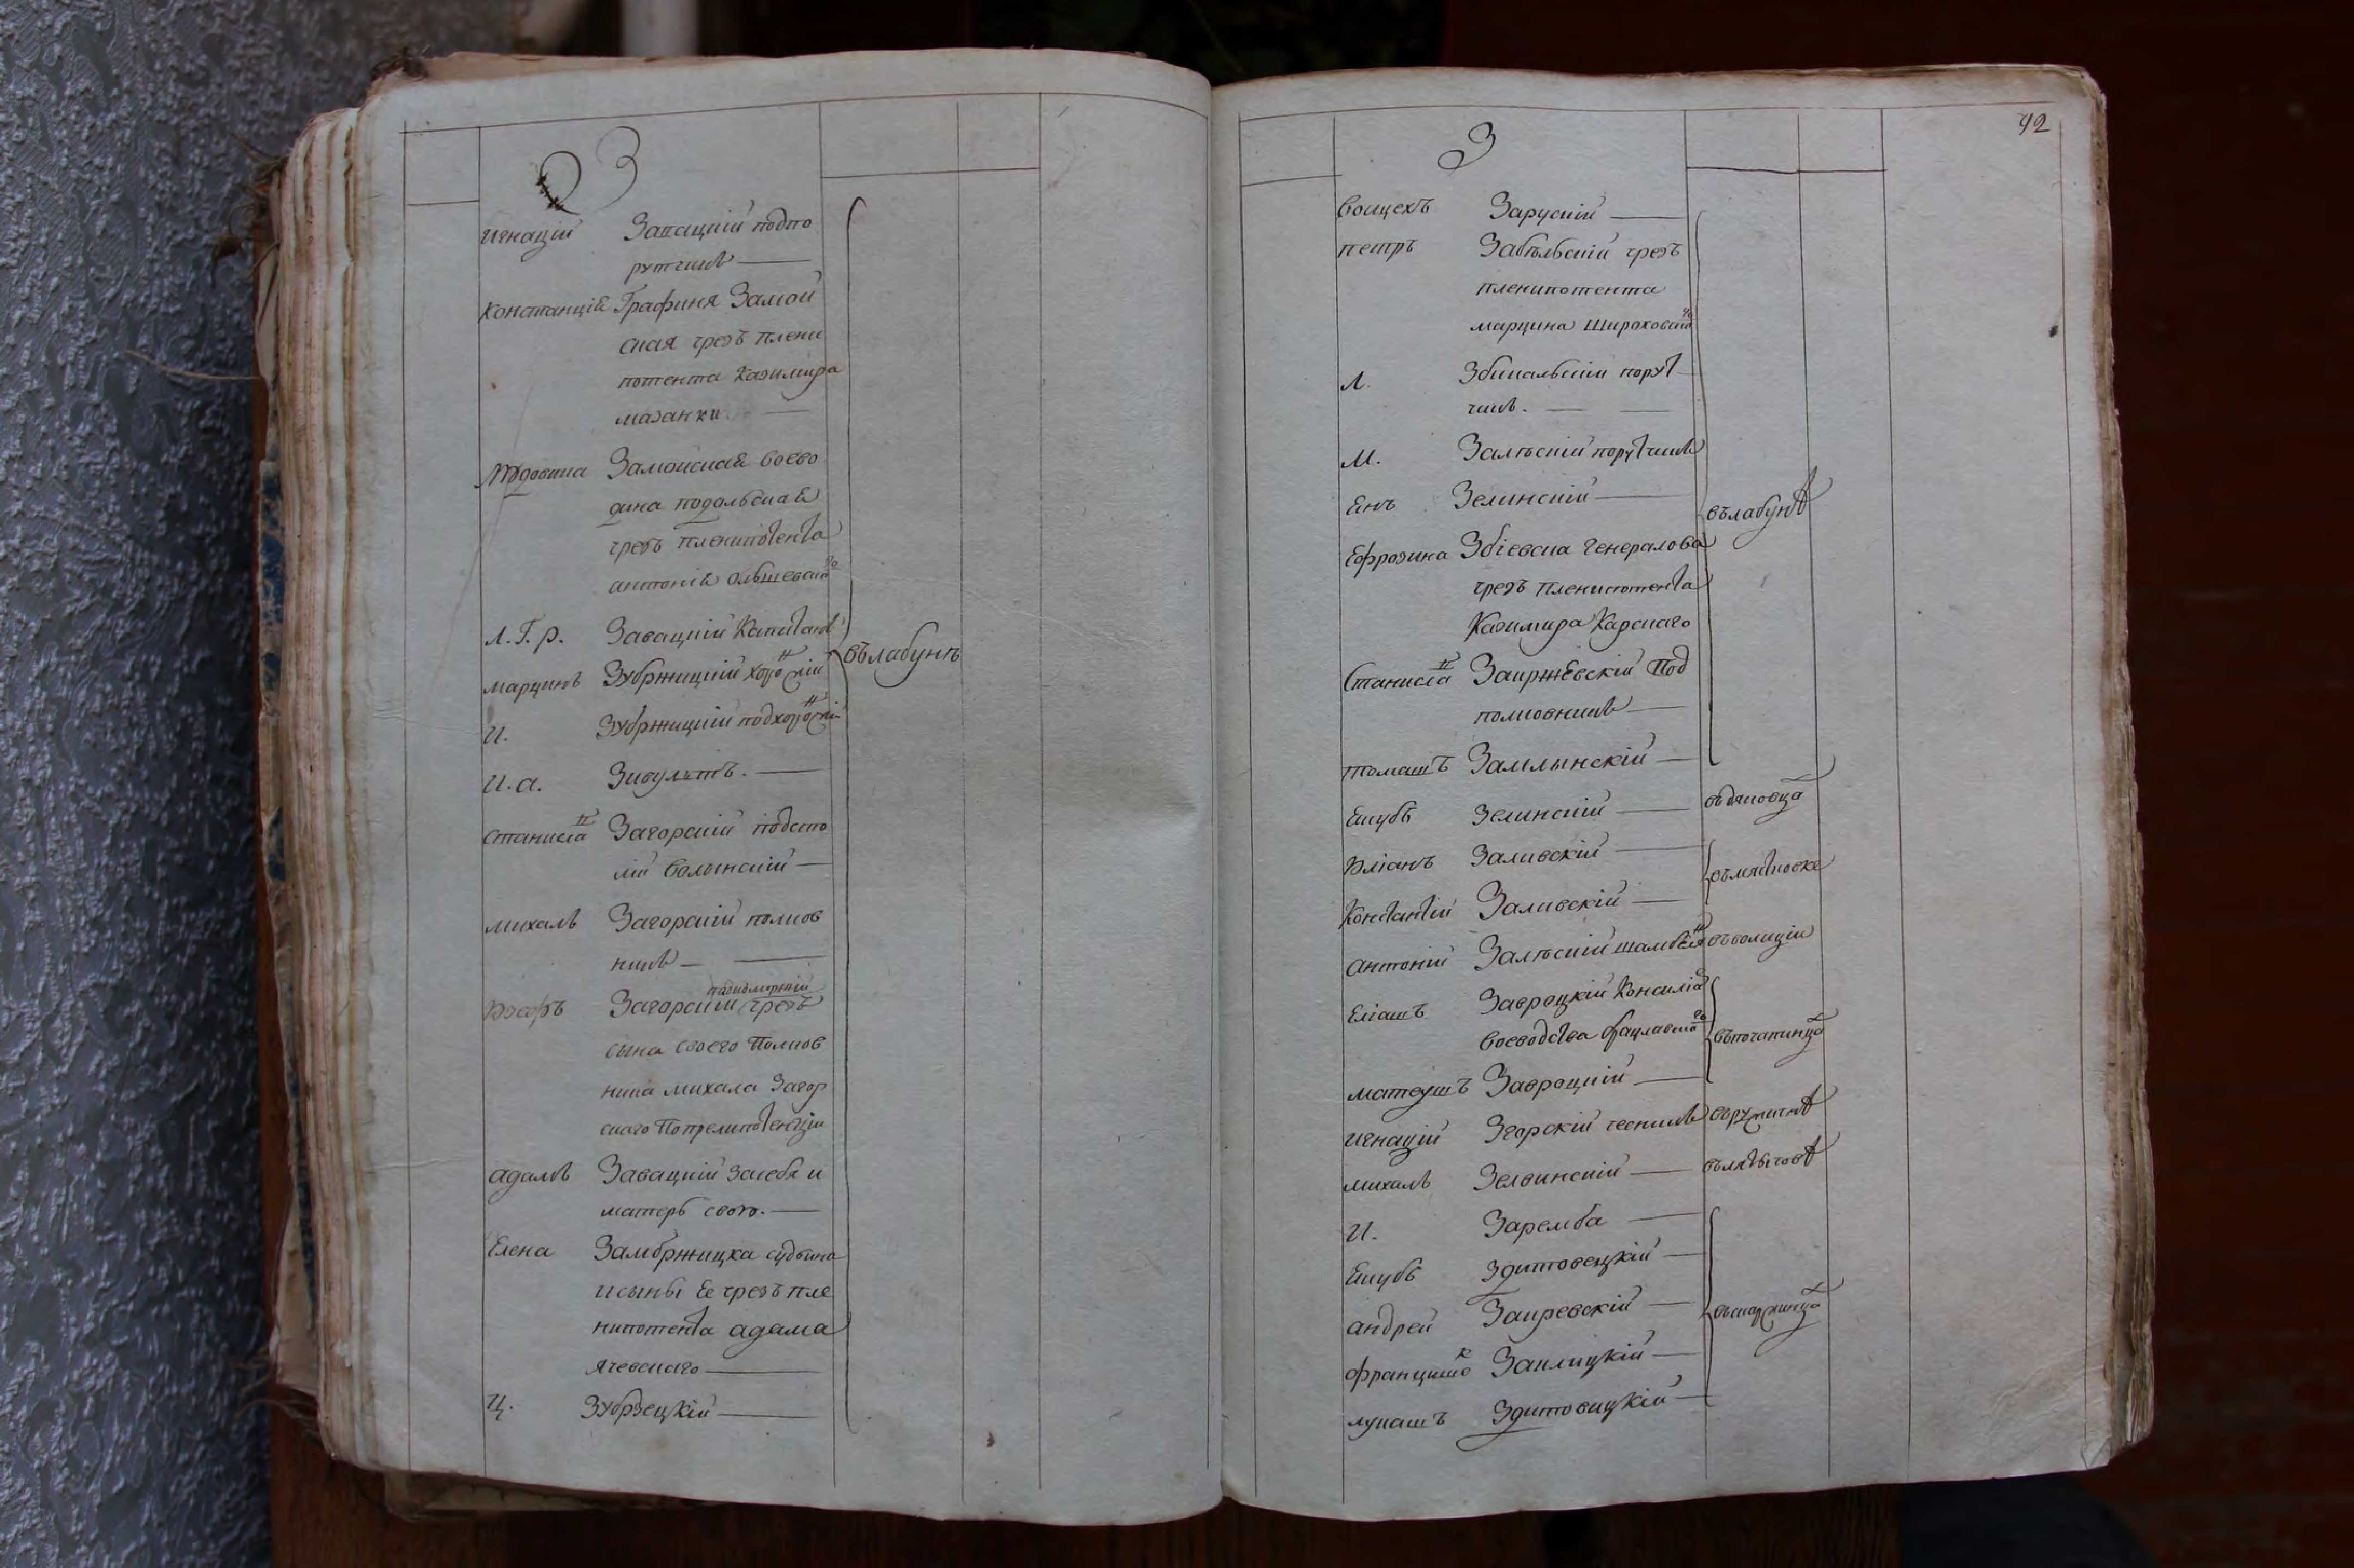 З
Игнацій Запацкій подпо
рутчикъ
Констанція Графиня Замой
ская чрезъ плени
потента Казимира
мазанки
Людовика Замойская воево
дина подольская
чрезъ пленипотента
антонія ольшевскаго
Л. Г. р. Завацкій Капитанъ
марцинъ Зубржицкій хорунжій
И. Зубржицкій подхорунжій
И. а. Зивультъ.
станиславъ Загорскій подсто
лій волынскій
михалъ Загорскій полков
никъ
Загорскій чрезъ
сына своего Полков
ника михала Загор
скаго По
адамъ Завацкій засебя и
матерь свою.
Елена Замбржицка судьина
исыны Ее чрезъ пле
нипотента адама
ячевскаго
Ц. Зубрзецкій
въ лабунѣ
92
З
Войцехъ Зарускій
петръ Забѣльскій чрезъ
пленипотента
марцина Широковскаго
Л. поруt
чикъ.
М. Залѣскій порутчикъ
Янъ Зелинскій
Ефрозина Збіевска Генералова
чрезъ пленипотента
Казимира Карскаго
Станиславъ Закржевскій Под
полковникъ
томашъ Замлынскій
въ лабунѣ
Якубъ Зелинскій
Юліанъ Заливскій
Константій Заливскій
антоній Залѣскій въ волиціи
Еліашъ Завроцкій Консиліаръ
воеводства брацлавскаго
матеушъ Завроцкій
игнацій Згорскій чесникъ
михалъ Зелвинскій
И. Заремба
Якубъ Здитовецкій
андрей Закревскій
францишекъ Заклицкій
лукашъ Здитовицкій